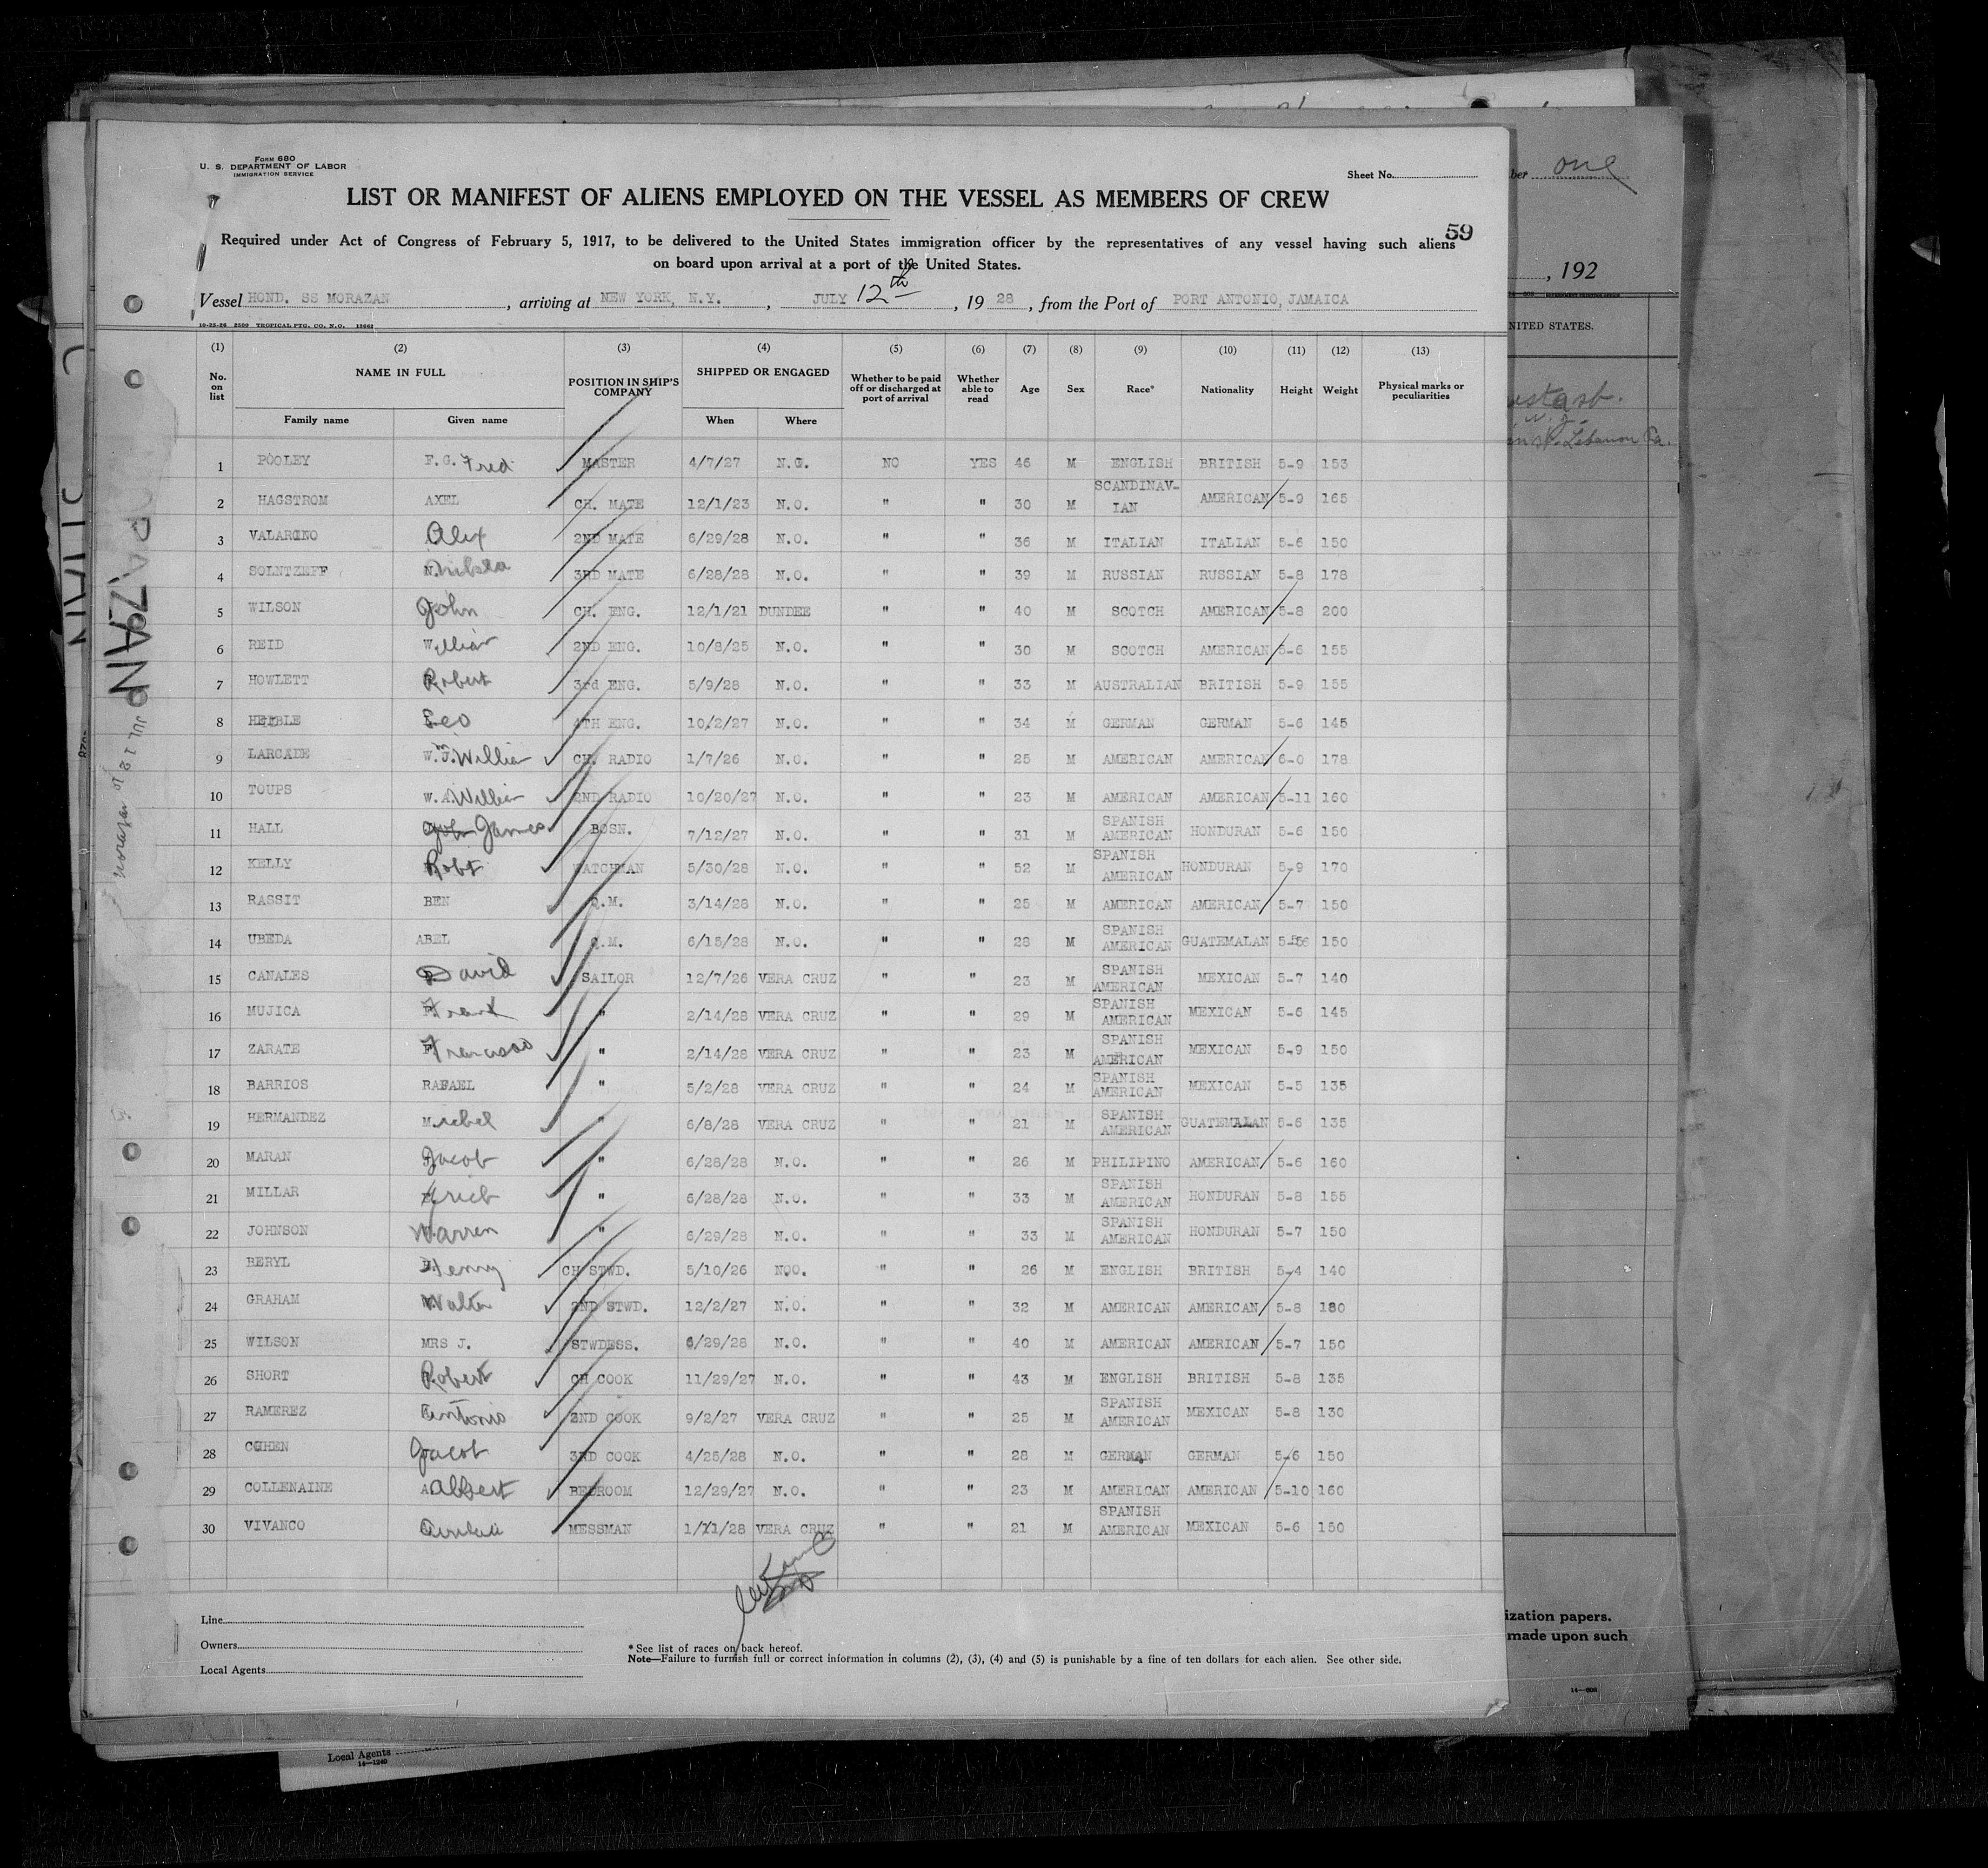 one
Form 680
U. S. DEPARTMENT OF LABOR
IMMIGRATION SERVICE
Sheet No.
LIST OR MANIFEST OF ALIENS EMPLOYED ON THE VESSEL AS MEMBERS OF CREW
59
Required under Act of Congress of February 5, 1917, to be delivered to the United States immigration officer by the representatives of any vessel having such aliens
on board upon arrival at a port of the United States.
Vessel HOND. SS MORAZAN, arriving at NEW YORK, N.Y., JULY 12th, 19 28, from the Port of PORT ANTONIO, JAMAICA
10-25-26 2500 TROPICAL PTG. CO. N.O. 13662
(1) (2) (3) (4) (5) (6) (7) (8) (9) (10) (11) (12) (13)
No. on list NAME IN FULL POSITION IN SHIP'S COMPANY SHIPPED OR ENGAGED Whether to be paid off or discharged at port of arrival Whether able to read Age Sex Race* Nationality Height Weight Physical marks or peculiarities
Family name Given name When Where
1 POOLEY F.G. Fred MASTER 4/7/27 N.O. NO YES 46 M ENGLISH BRITISH 5-9 153
2 HAGSTROM AXEL CH. MATE 12/1/23 N.O. " " 30 M SCANDINAV-IAN AMERICAN 5-9 165
3 VALARCINO Alex 2ND MATE 6/29/28 N.O. " " 36 M ITALIAN ITALIAN 5-6 150
4 SOLNTZEFF 3RD MATE 6/28/28 N.O. " " 39 M RUSSIAN RUSSIAN 5-8 178
5 WILSON John CH. ENG. 12/1/21 DUNDEE " " 40 M SCOTCH AMERICAN 5-8 200
6 REID William 2ND ENG. 10/8/25 N.O. " " 30 M SCOTCH AMERICAN 5-6 155
7 HOWLETT Robert 3rd ENG. 5/9/28 N.O. " " 33 M AUSTRALIAN BRITISH 5-9 155
8 HEIBLE Leo 4TH ENG. 10/2/27 N.O. " " 34 M GERMAN GERMAN 5-6 145
9 LARCADE W.J. William CH. RADIO 1/7/26 N.O. " " 25 M AMERICAN AMERICAN 6-0 178
10 TOUPS W.A. William 2ND RADIO 10/20/27 N.O. " " 23 M AMERICAN AMERICAN 5-11 160
11 HALL James BOSN. 7/12/27 N.O. " " 31 M SPANISH AMERICAN HONDURAN 5-6 150
12 KELLY Robt WATCHMAN 5/30/28 N.O. " " 52 M SPANISH AMERICAN HONDURAN 5-9 170
13 RASSIT BEN Q.M. 3/14/28 N.O. " " 25 M AMERICAN AMERICAN 5-7 150
14 UBEDA ABEL Q.M. 6/15/28 N.O. " " 28 M SPANISH AMERICAN GUATEMALAN 150
15 CANALES David SAILOR 12/7/26 VERA CRUZ " " 23 M SPANISH AMERICAN MEXICAN 5-7 140
16 MUJICA Frank " 2/14/28 VERA CRUZ " " 29 M SPANISH AMERICAN MEXICAN 5-6 145
17 ZARATE Francisco " 2/14/28 VERA CRUZ " " 23 M SPANISH AMERICAN MEXICAN 5-9 150
18 BARRIOS RAFAEL " 5/2/28 VERA CRUZ " " 24 M SPANISH AMERICAN MEXICAN 5-5 135
19 HERMANDEZ " 6/8/28 VERA CRUZ " " 21 M SPANISH AMERICAN GUATEMALAN 5-6 135
20 MARAN Jacob " 6/28/28 N.O. " " 26 M PHILIPINO AMERICAN 5-6 160
21 MILLAR " 6/28/28 N.O. " " 33 M SPANISH AMERICAN HONDURAN 5-8 155
22 JOHNSON Warren " 6/29/28 N.O. " " 33 M SPANISH AMERICAN HONDURAN 5-7 150
23 BERYL Henry CH STWD. 5/10/26 NOO. " " 26 M ENGLISH BRITISH 5-4 140
24 GRAHAM Walter 2ND STWD. 12/2/27 N.O. " " 32 M AMERICAN AMERICAN 5-8 180
25 WILSON MRS J. STWDESS. 6/29/28 N.O. " " 40 M AMERICAN AMERICAN 5-7 150
26 SHORT Robert CH COOK 11/29/27 N.O. " " 43 M ENGLISH BRITISH 5-8 135
27 RAMEREZ Antonio 2ND COOK 9/2/27 VERA CRUZ " " 25 M SPANISH AMERICAN MEXICAN 5-8 130
28 COHEN Jacob 3RD COOK 4/25/28 N.O. " " 28 M GERMAN GERMAN 5-6 150
29 COLLENAINE Albert BEDROOM 12/29/27 N.O. " " 23 M AMERICAN AMERICAN 5-10 160
30 VIVANCO MESSMAN 1/11/28 VERA CRUZ " " 21 M SPANISH AMERICAN MEXICAN 5-6 150
Line
Owners
Local Agents
* See list of races on back hereof.
Note—Failure to furnish full or correct information in columns (2), (3), (4) and (5) is punishable by a fine of ten dollars for each alien. See other side.
, 192
NITED STATES.
Lebanon Pa.
ization papers.
made upon such
14—608
Local Agents
14—1240